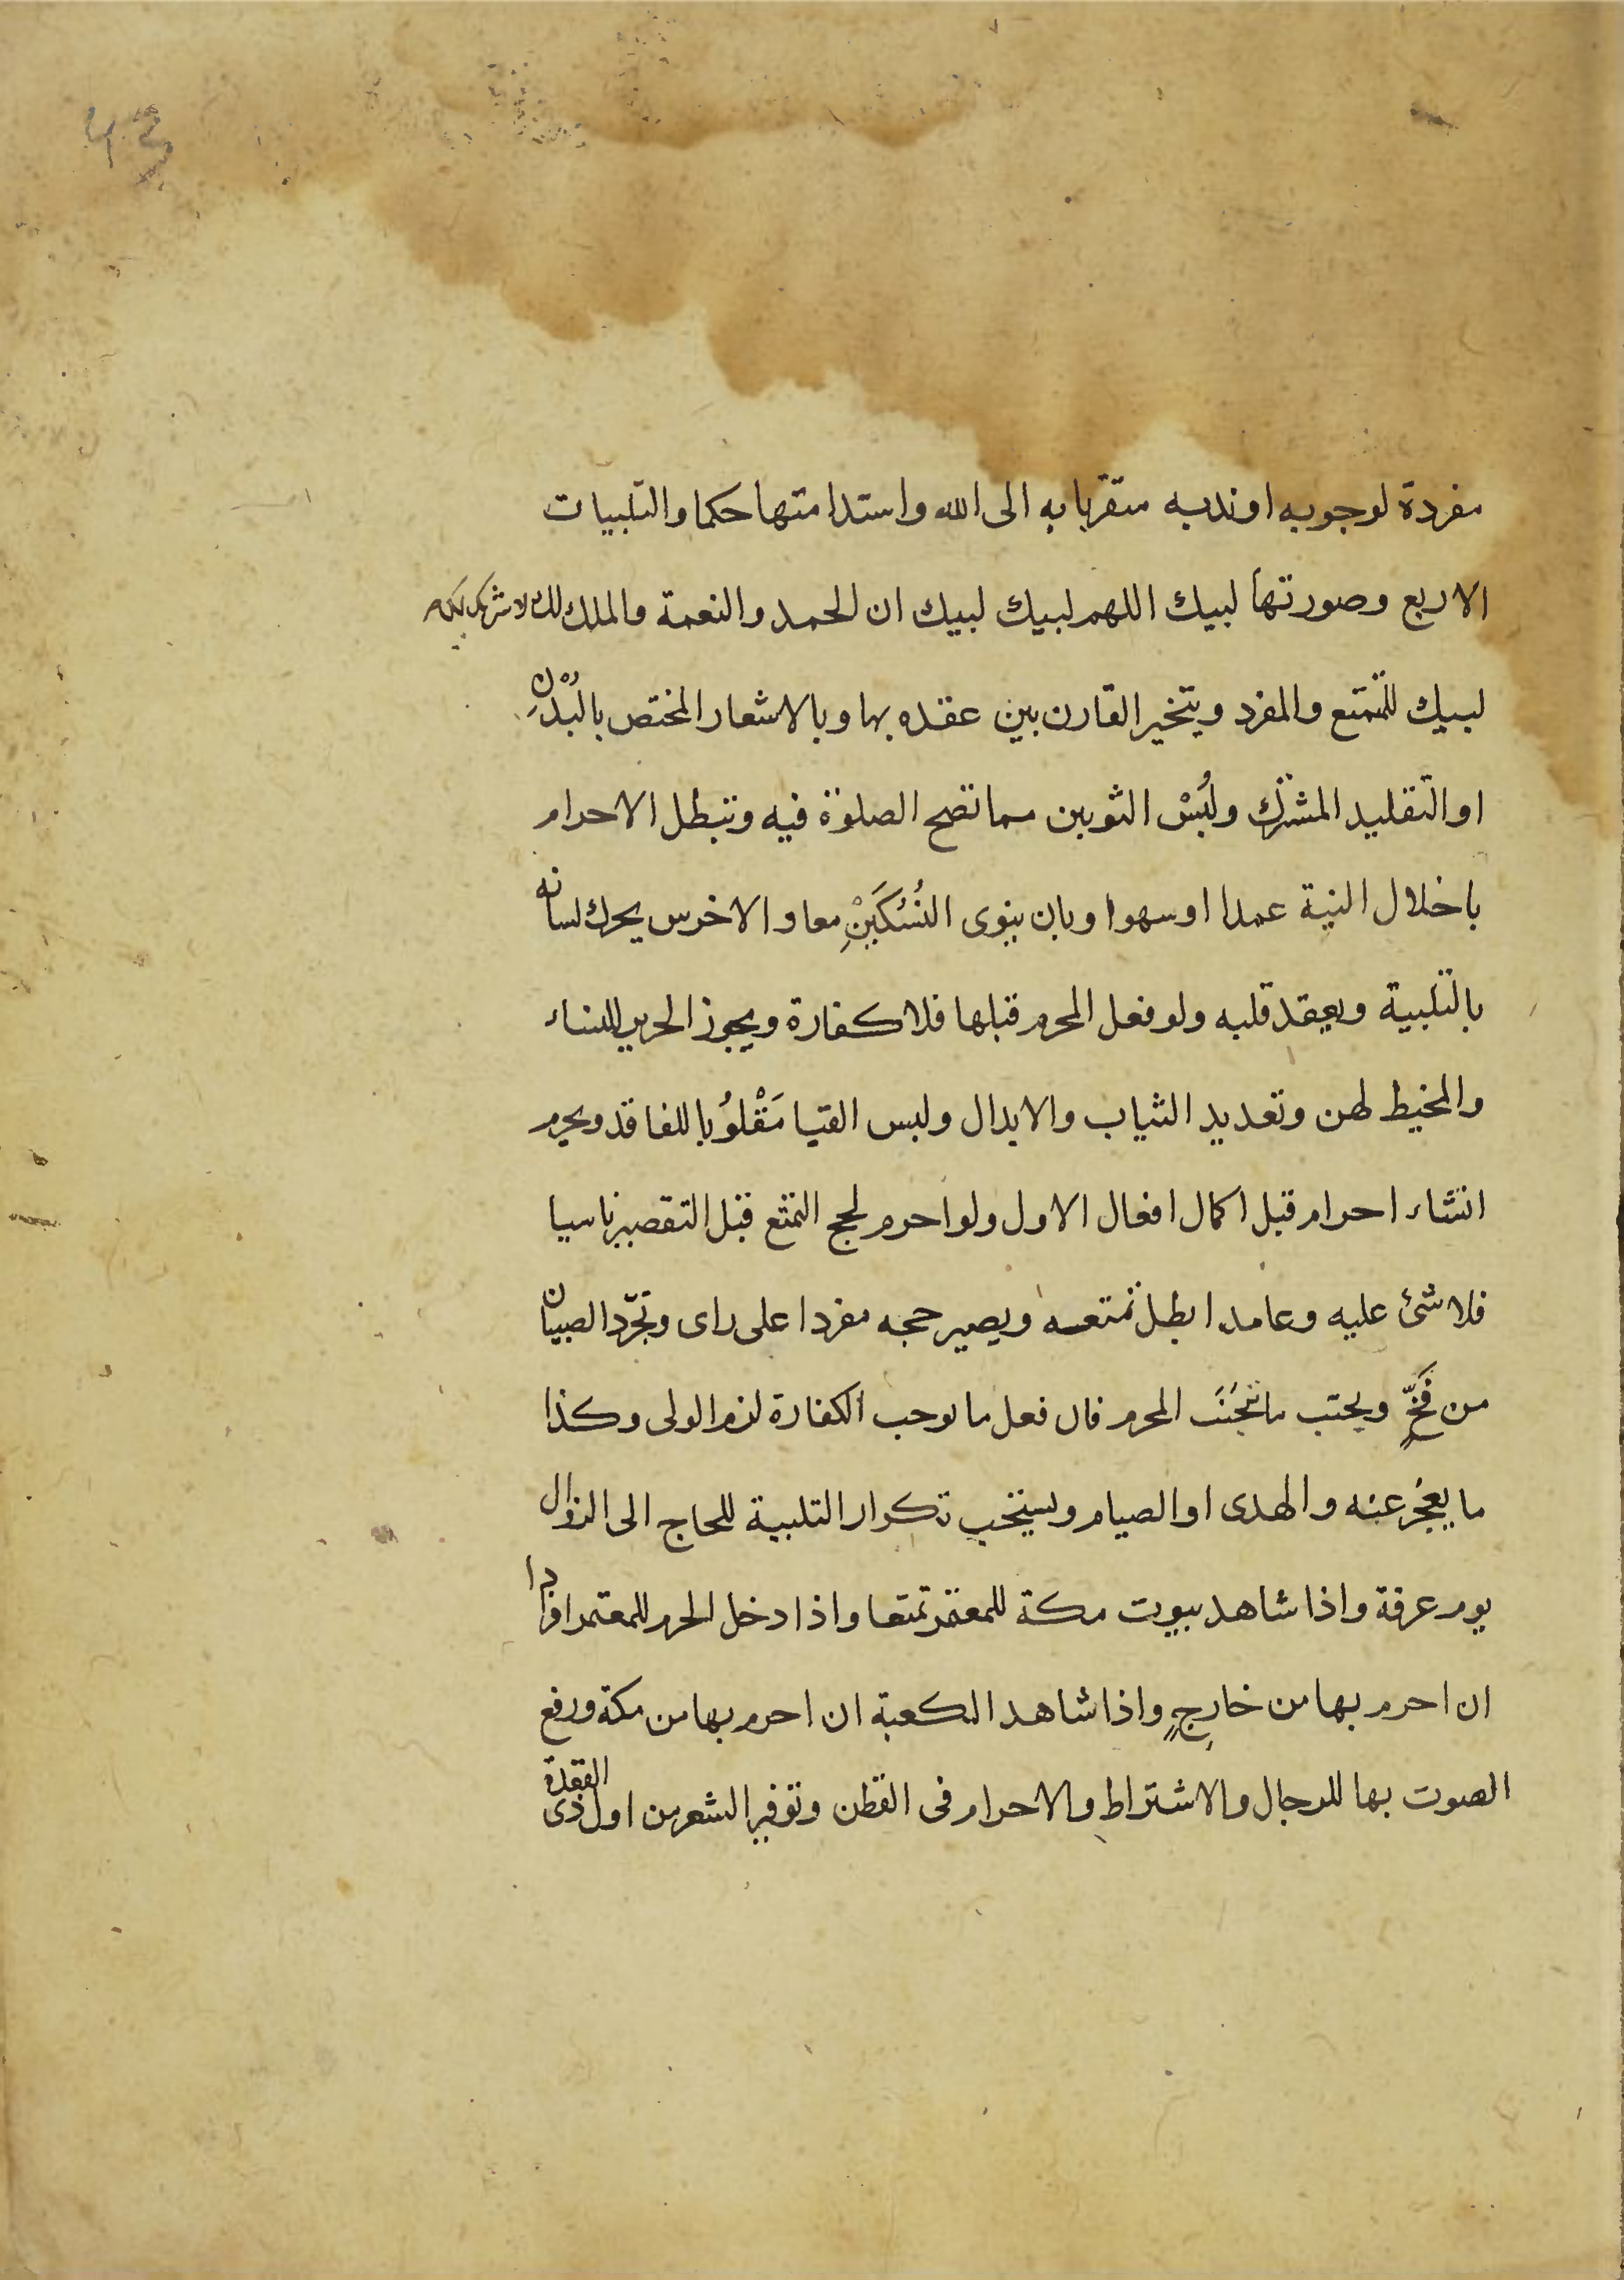 43
مفردة لوجوبه او ندبه متقربا به الى الله واستدامتها حكما والتلبيات
الاربع وصورتها لبيك اللهم لبيك لبيك ان الحمد والنعمة والملك لك لا شريك لك
لبيك للتمتع والمفرد ويتخير القارن بين عقده بها وبالاشعار المختص بالبُدْنِ
او التقليد المشترك ولُبْسْ الثوبين مما تصح الصلوة فيه وتبطل الاحرام
باخلال النية عمدا او سهوا وبان ينوى النُسُكَيْنِ معا والاخرس يحرك لسانه
بالتلبية ويعقد قلبه ولو فعل المحرم قبلها فلا كفارة ويجوز الحرير للنساء
والمخيط لهن وتعديد الثياب والابدال ولبس القبا مَقْلُوْبا للفاقد ويحرم
انشاء احرام قبل اكمال افعال الاول ولو احرم لحج التمتع قبل التقصير ناسيا
فلا شئ عليه وعامدا بطل تمتعه ويصير حجه مفردا على راى وتجرّد الصبيان
من فَخٍّ ويجتب ما تجنَنَب المحرم فان فعل ما يوجب الكفارة لزم الولى وكذا
ما يعجز عنه والهدى او الصيام ويستحب تكرار التلبية للحاج الى الزوال
يوم عرفة واذا شاهد بيوت مكة للمعتمر تمتعا واذا دخل الحرم للمعتمر افرادا
ان احرم بها من خارجٍ واذا شاهد الكعبة ان احرم بها من مكة ورفع
الصوت بها للرجال والاشتراط والاحرام فى القطن وتوفير الشعر من اول ذى القعدة